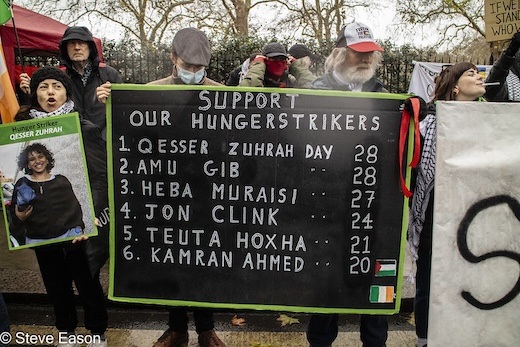 IF WE
STAN
WHO'
SUPPORT
OUR HUNGERSTRIKERS
1. QESSER ZUHRAH DAY 28
2. AMU GIB " 28
3. HEBA MURAISI " 27
4. JON CLINK " 24
5. TEUTA HOXHA " 21
6. KAMRAN AHMED " 20
Hunger Striker
QESSER ZUHRAH
S
© Steve Eason